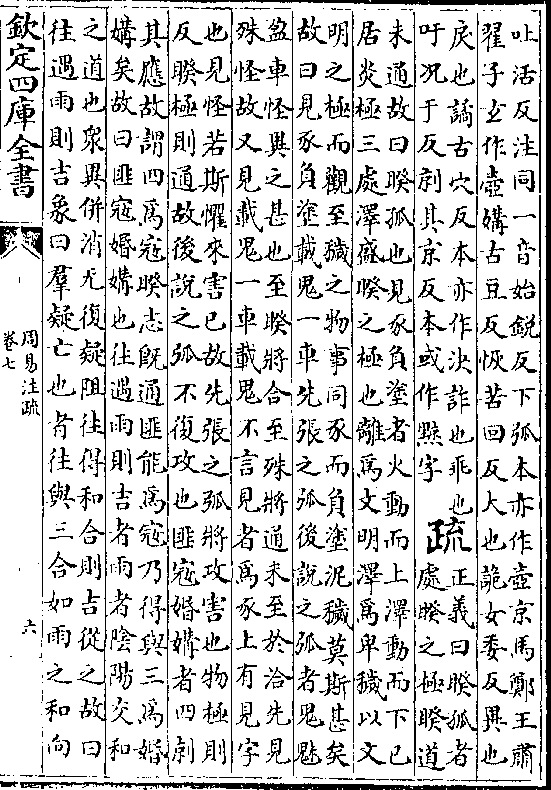 吐活反注同一音始銳反下弧本亦作壺京馬鄭王肅
翟子𤣥作壺媾古豆反恢苦回反大也詭女委反異也
戾也譎古穴反本亦作決詐也乖也
吁况于反剠其京反本或作黥字
疏正義曰睽孤者
處睽之極睽道
未通故曰睽孤也見豕負塗者火動而上澤動而下已
居炎極三處澤盛睽之極也離爲文明澤爲卑穢以文
明之極而觀至穢之物事同豕而負塗泥穢莫斯甚矣
故曰見豕負塗載鬼一車先張之弧後說之弧者鬼魅
盈車怪異之甚也至睽將合至殊將通未至於洽先見
殊怪故又見載鬼一車載鬼不言見者爲豕上有見字
也見怪若斯懼來害已故先張之弧將攻害也物極則
反睽極則通故後說之弧不復攻也匪寇婚媾者四剠
其應故謂四爲寇睽志旣通匪能爲寇乃得與三爲婚
媾矣故曰匪寇婚媾也往遇雨則吉者雨者陰陽交和
之道也衆異併消无復疑阻往得和合則吉從之故曰
往遇雨則吉象曰羣疑亡也者往與三合如雨之和向
欽定四庫全書
周易注疏
卷七
六